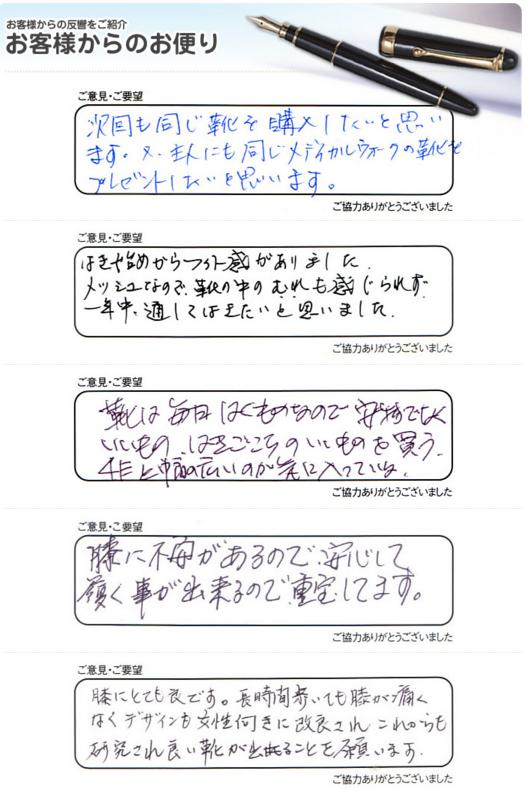 お客様からの反響をご紹介
お客様からのお便り
ご意見・ご要望
次回も同じ靴を購入したいと思い
ます。又、主人にも同じメディカルウォークの靴を
プレゼントしたいと思います。
ご協力ありがとうございました
ご意見・ご要望
はき始めからフィット感がありました。
メッシュなので、靴の中のむれも感じられず、
一年中、通してはきたいと思いました。
ご協力ありがとうございました
ご意見・ご要望
靴は毎日はくものなので安物でなく
いいもの、はきごこちのいいものを買う。
4Eと幅の広いのが気に入っている。
ご協力ありがとうございました
ご意見・ご要望
膝に不安があるので、安心して
履く事が出来るので重宝してます。
ご協力ありがとうございました
ご意見・ご要望
膝にとても良です。長時間歩いても膝が痛く
なくデザインも女性向きに改良され これからも
研究され良い靴が出来ることを願います。
ご協力ありがとうございました